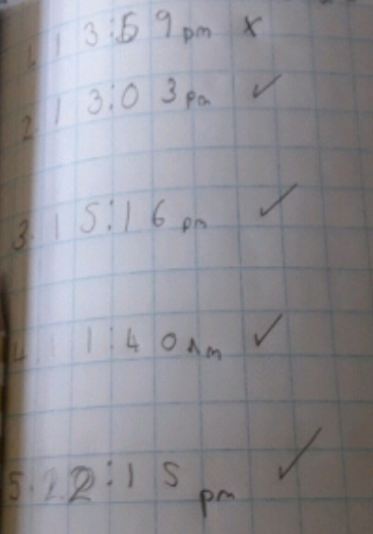 1. 13:59 pm x
2 13:03 pm ✓
3. 15:16 pm ✓
4. 11:40 Am ✓
5. 22:15 pm ✓